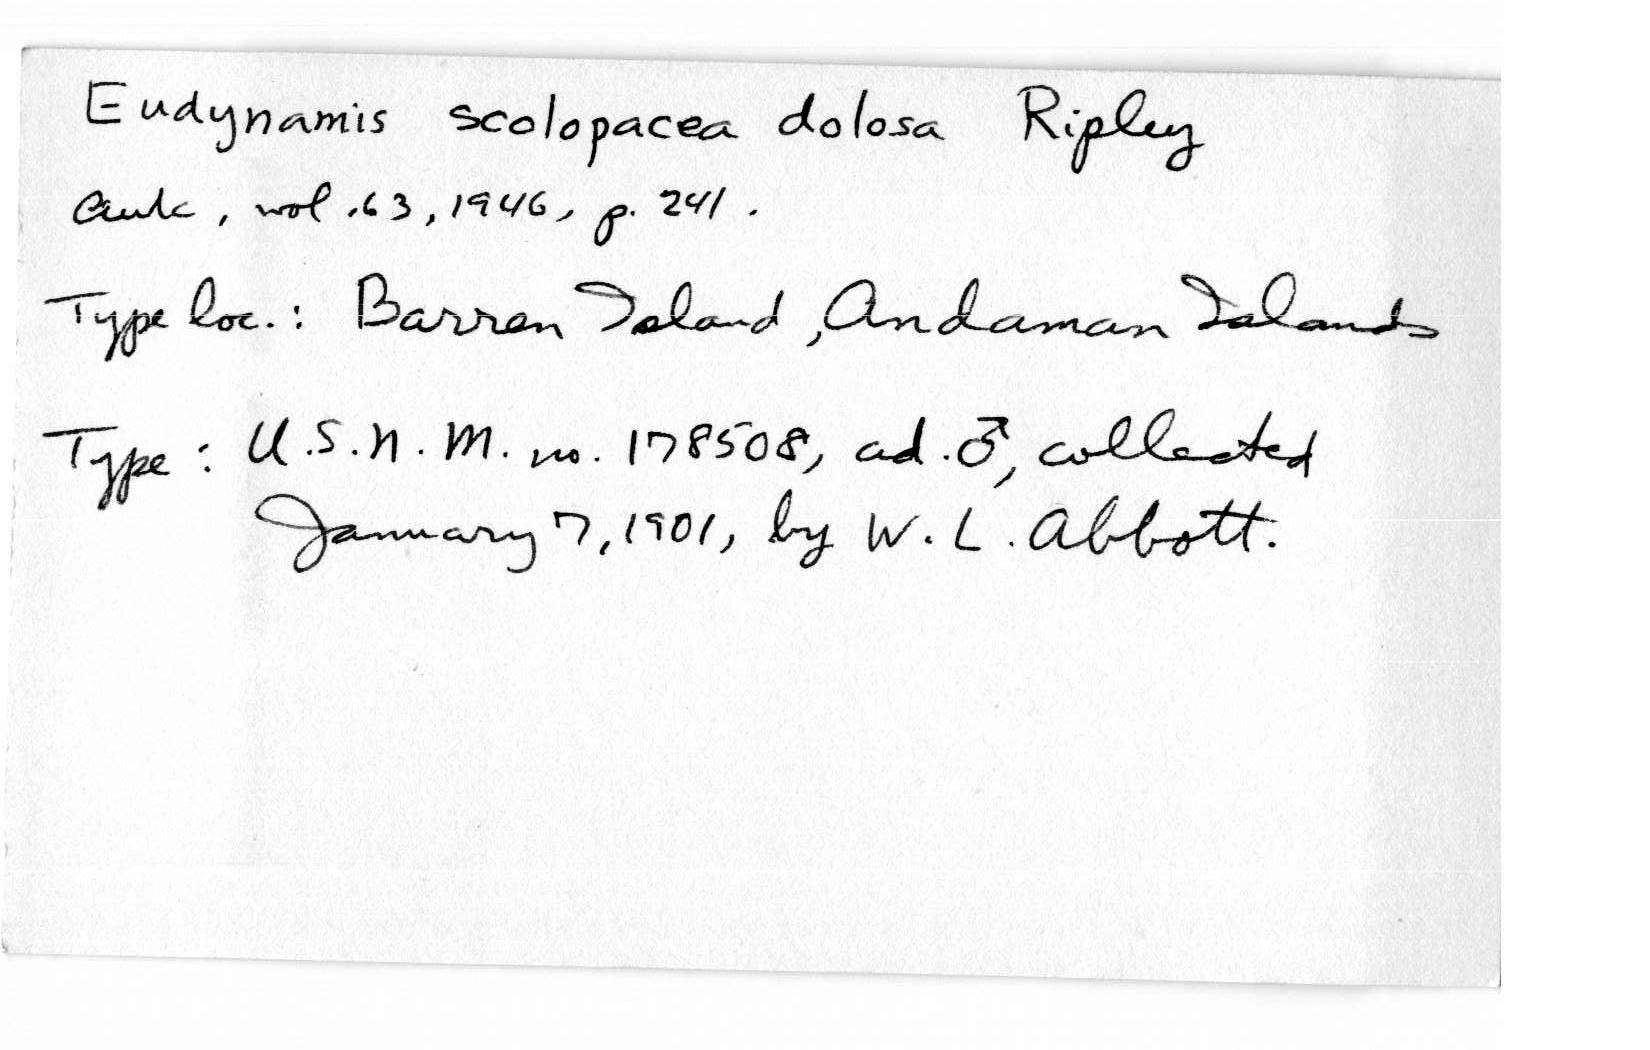 Eudynamis scolopacea dolosa Ripley
Auk, vol. 63, 1946, p. 241.
Type loc.: Barren Island, Andaman Islands
Type: U.S.N.M. no. 178508, ad. ♂, collected
January 7, 1901, by W. L. Abbott.